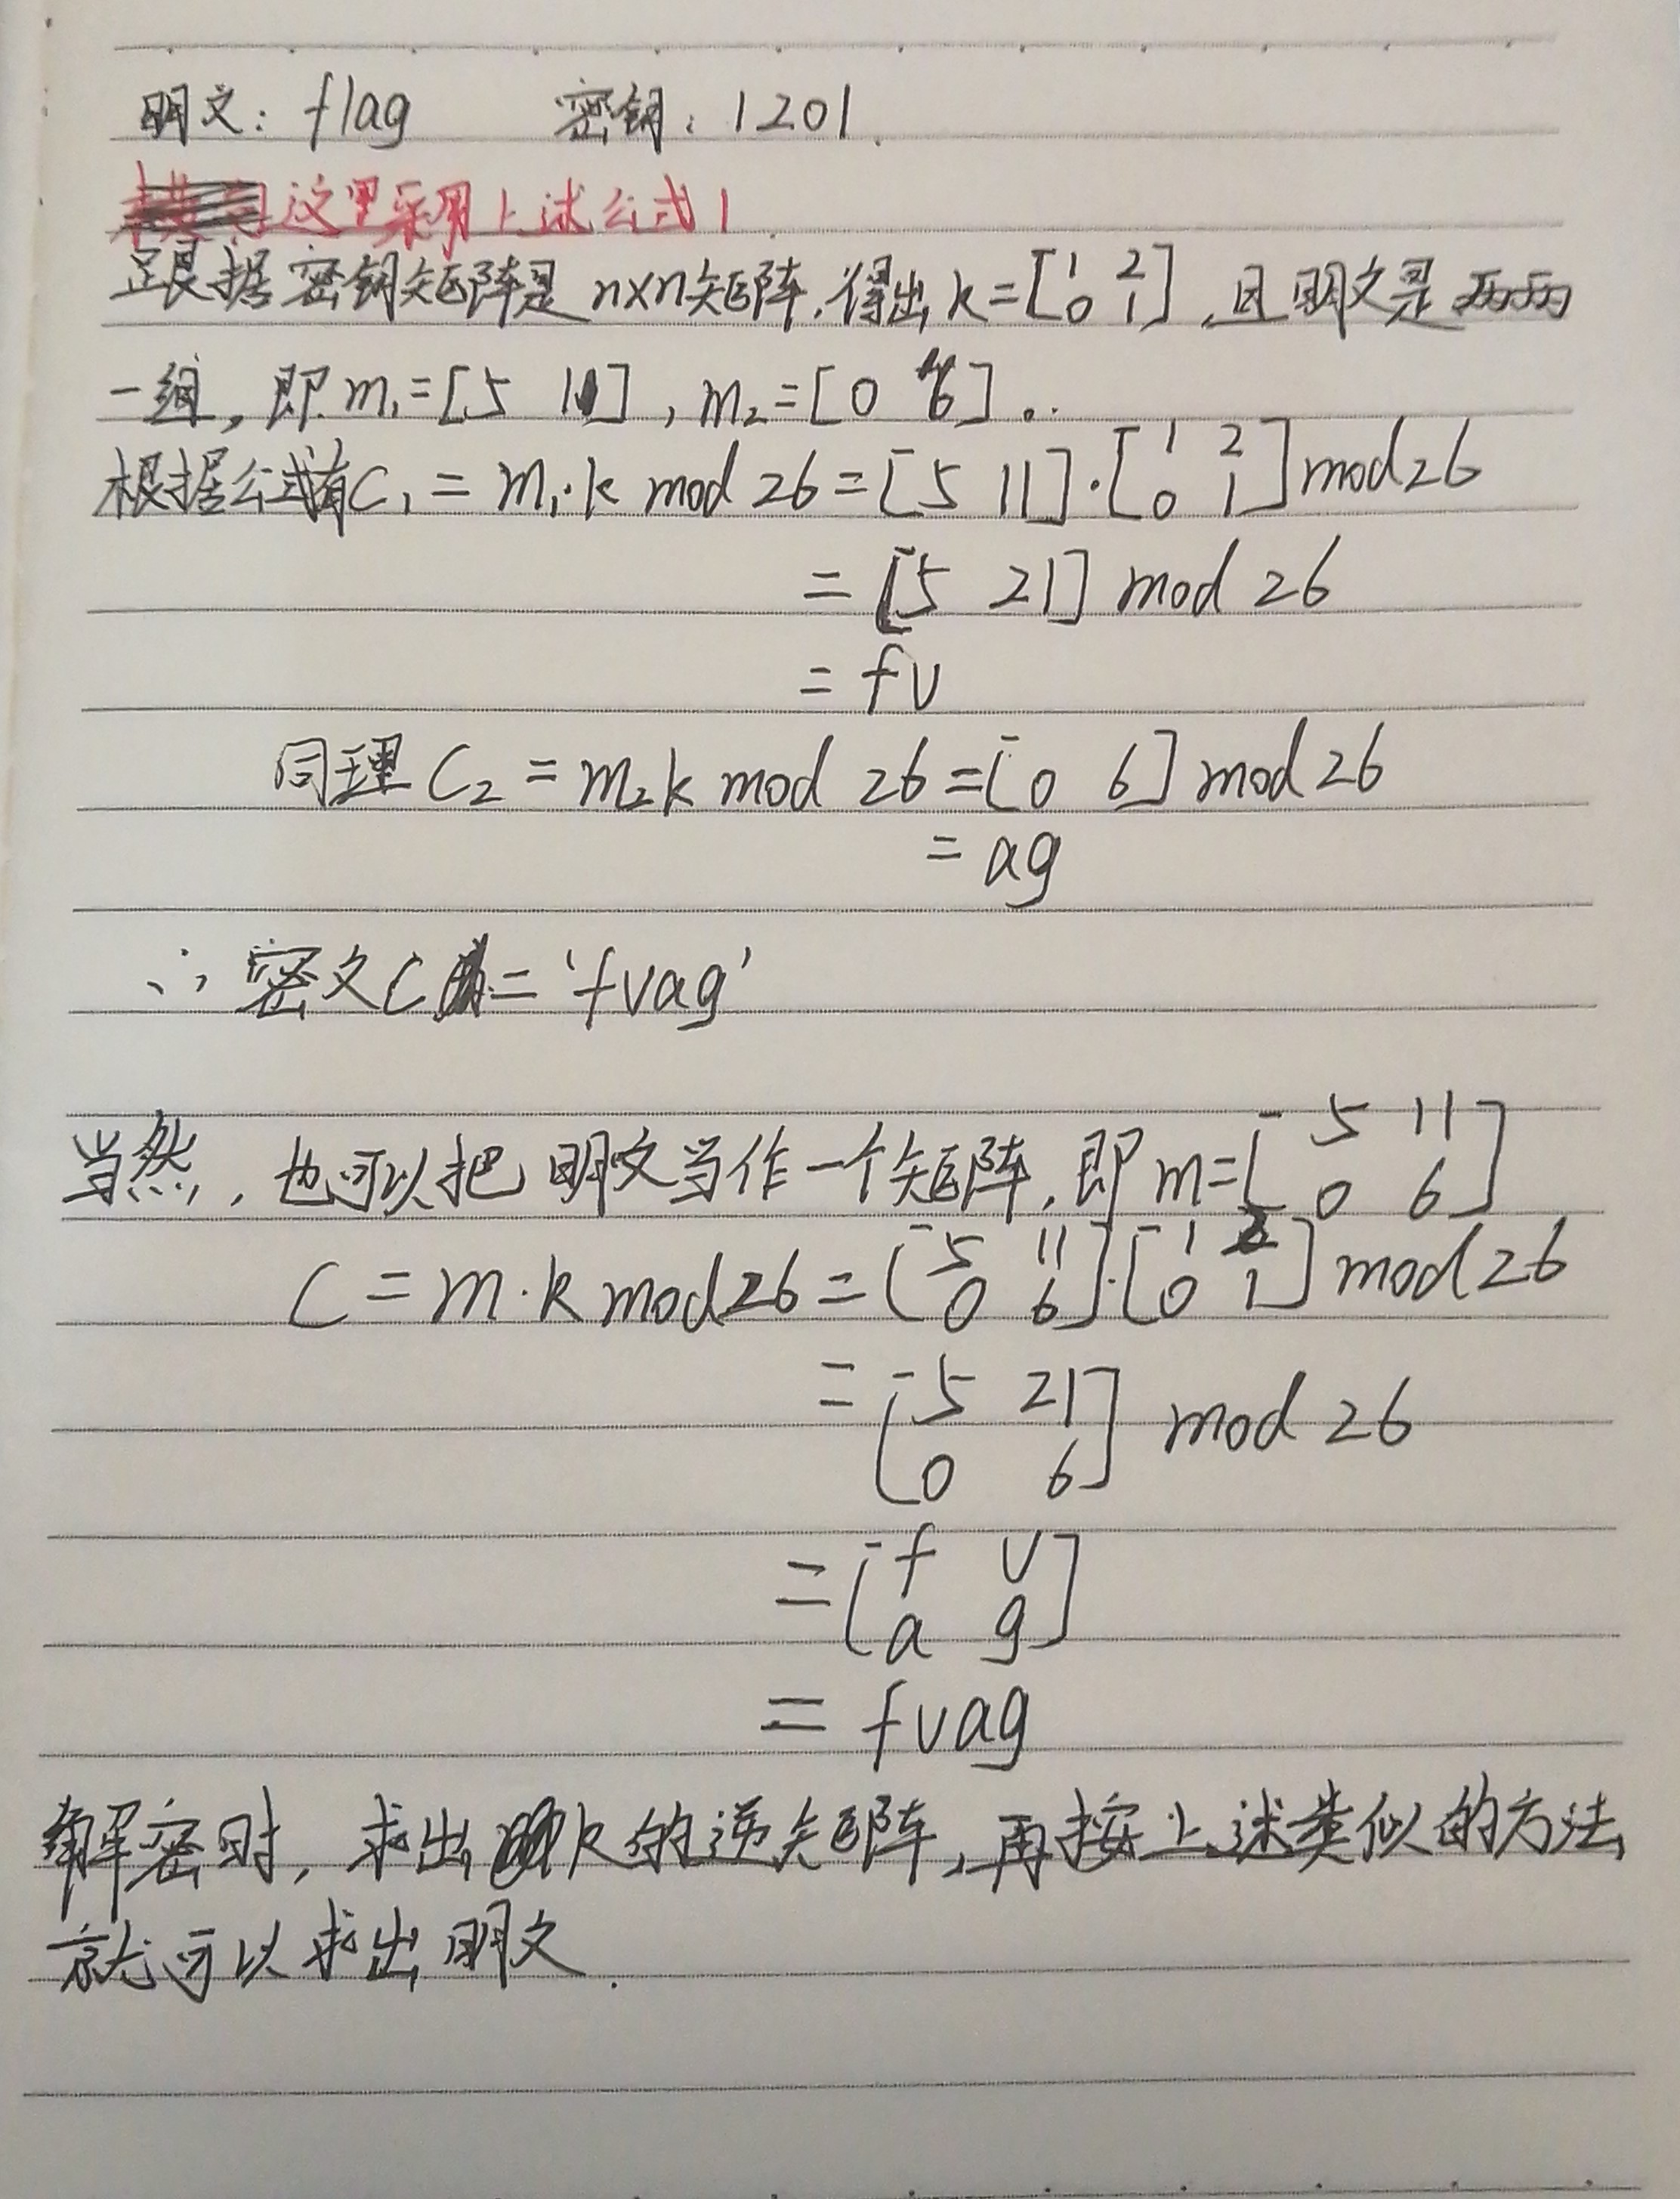 明文：flag 密钥：1201.
这里采用上述公式1.
跟据密钥矩阵是n×n矩阵,得出k=[1 2 0 1],且明文是两两
一组,即m₁=[5 11],m₂=[0 6]。
根据公式有C₁=m₁·k mod 26=[5 11]·[1 2 0 1]mod26
=[5 21] mod 26
=fv
同理C₂=m₂k mod 26=[0 6]mod26
=ag
∴密文C='fvag'
当然,也可以把明文当作一个矩阵,即m=[5 11 0 6]
C=m·k mod26=[5 11 0 6]·[1 2 0 1]mod26
=[5 21 0 6] mod 26
=[f v a g]
=fvag
解密时,求出k的逆矩阵,再按上述类似的方法
就可以求出明文.